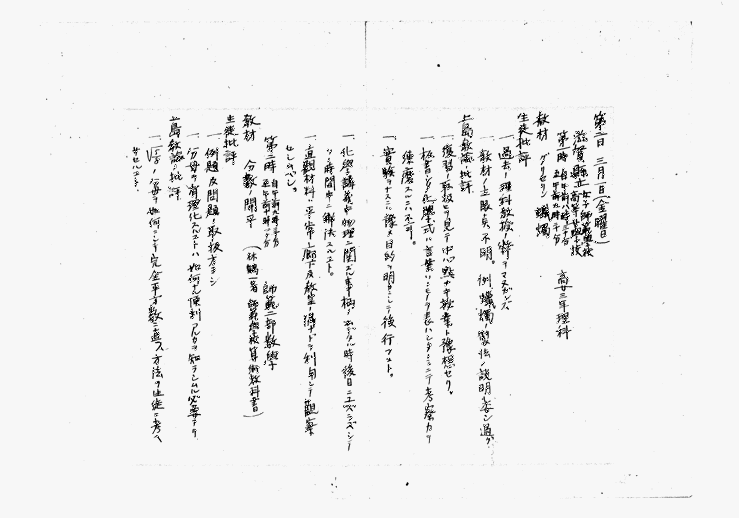 第二日 三月一日(金曜日)
滋賀縣立女子師範學校
高等女學校
第一時 自午前八時三十分
至午前九時二十分 高女三年理科
教材 グリセリン 蠟燭
生徒批評
一、過去ノ理科教授ノ弊
一、教材ノ主眼点不明。例 蠟燭ノ製法ノ説明
上島教諭ノ批評
一、復習ノ取扱ヒヲ見テ中心點ナキ授業ト豫想セリ。
一、板書及ビ化學式ハ言葉
練磨スルニハ不可。
一、實驗ヲナスニハ豫メ目的ヲ明カニシテ後行フベシ。
一、化學ノ講義中物理ニ関スル事柄
時間中ニ解決スベシ。
一、直觀材料ハ平常ニ廊下及教室ノ溝ナドヲ利用シテ觀察
セシムベシ。
第二時 自午前九時三十分
至午前十時二十分 師範二部數學
教材 分數ノ開平 (林鶴一著 師範學校算術教科書)
生徒批評
一、例題及問題ノ取扱方ヨシ
一、分母ヲ有理化スルコトハ如何ナル便利アルカヲ知ラシムル必要アリ
上島教諭ノ批評
一、分母ヲ如何ニシテ完全平方數ニ直ス方法ヲ生徒ニ考ヘ
サセルコト。